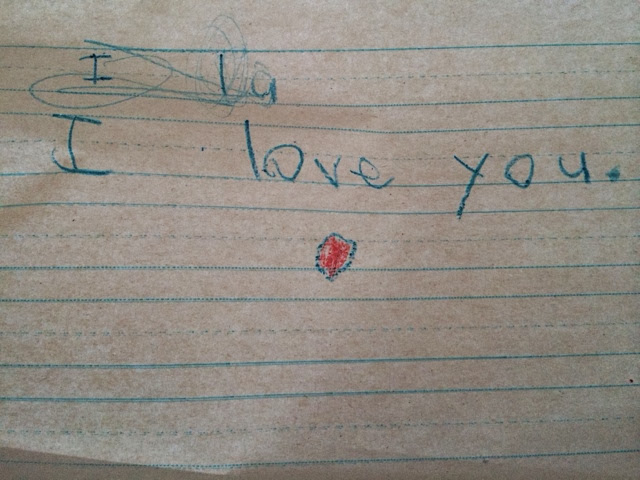 I la
I love you.